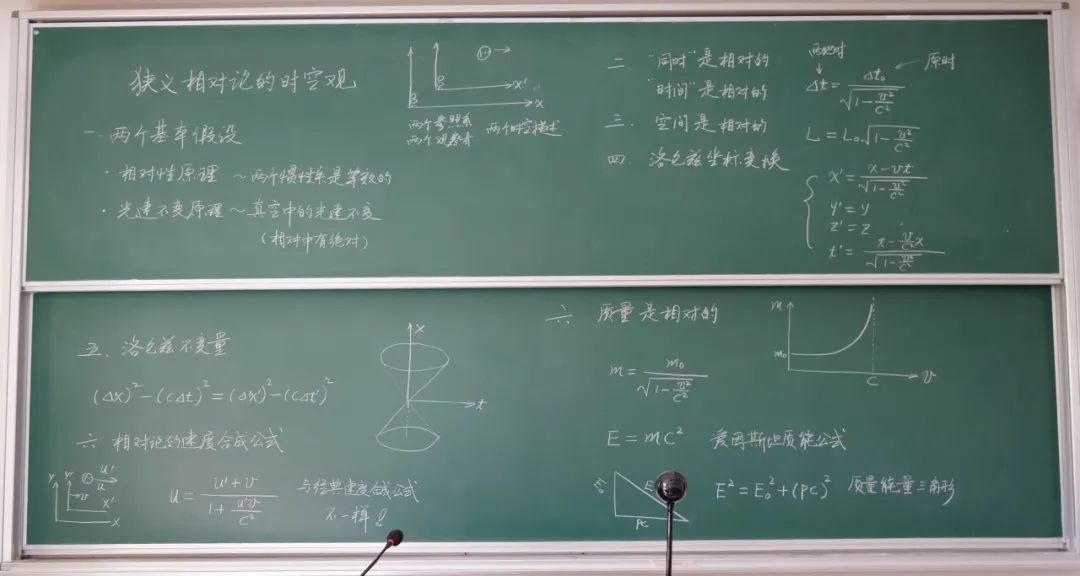 狭义相对论的时空观
一. 两个基本假设
· 相对性原理 ~ 两个惯性系是等效的
· 光速不变原理 ~ 真空中的光速不变
(相对中有绝对)
x'
x
两个参照系
两个观察者
两个时空描述
二. "同时"是相对的
"时间"是相对的
三. 空间是相对的
四. 洛仑兹坐标变换
两地时
原时
Δt = Δt₀ / √(1 - v²/c²)
L = L₀√(1 - v²/c²)
x' = (x - vt) / √(1 - v²/c²)
y' = y
z' = z
t' = (t - v/c² x) / √(1 - v²/c²)
五. 洛仑兹不变量
(Δx)² - (cΔt)² = (Δx')² - (cΔt')²
x
t
六 相对论的速度合成公式
Y Y' u'
u
v
x'
x
u = (u' + v) / (1 + u'v/c²)
与经典速度合成公式
不一样!
六 质量是相对的
m
m₀
c
v
m = m₀ / √(1 - v²/c²)
E = mc² 爱因斯坦质能公式
E₀
E
PC
E² = E₀² + (PC)² 质量能量三角形